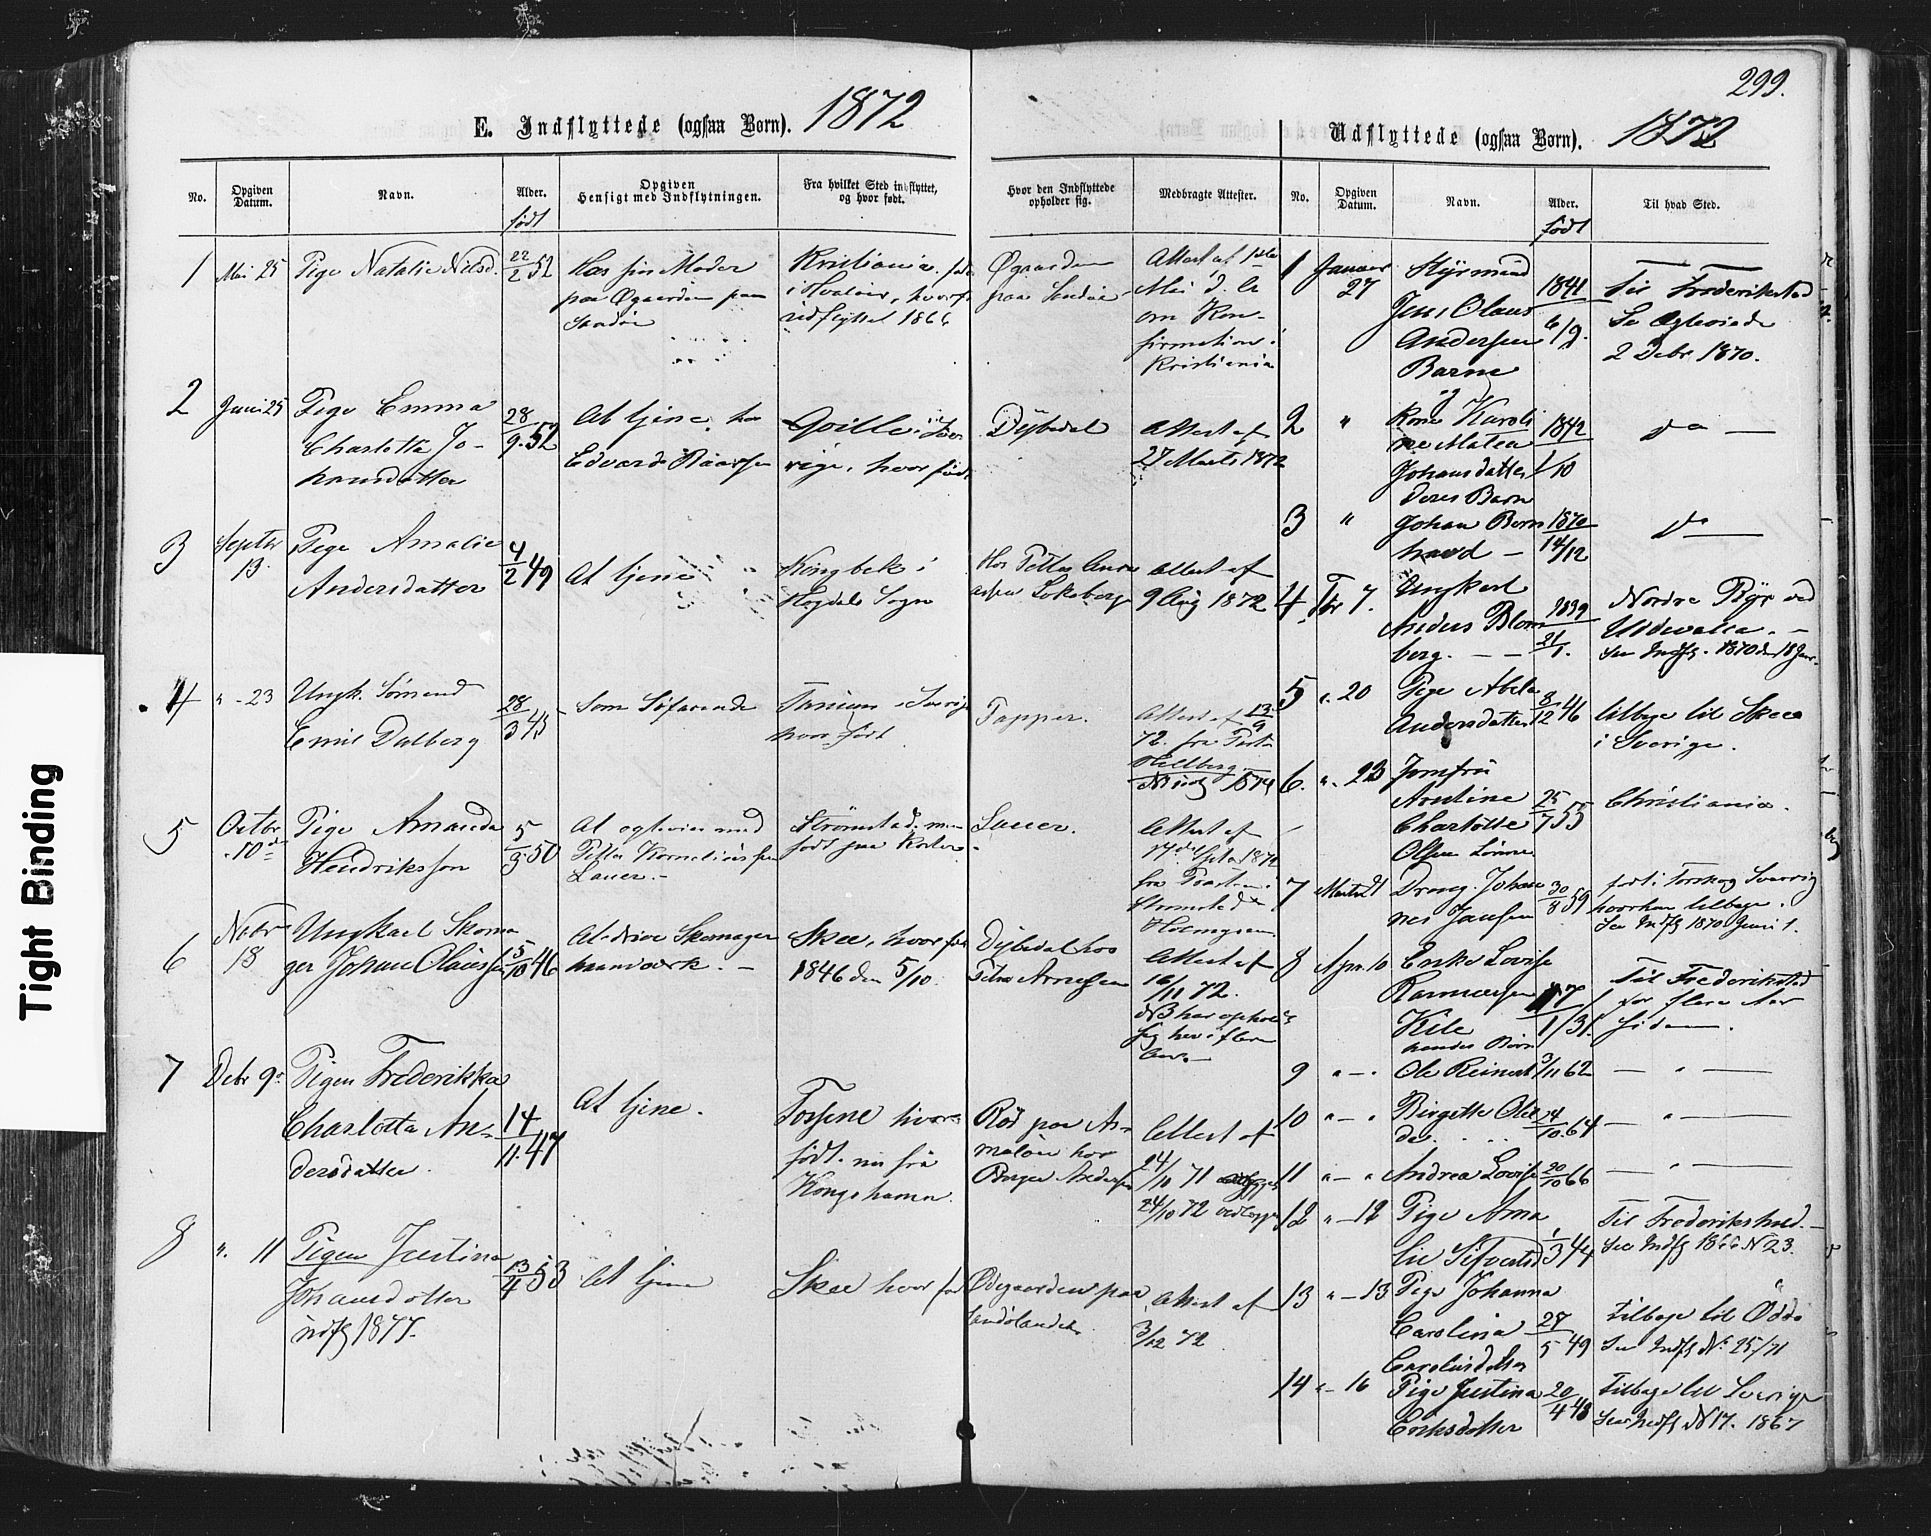 299.
E. Indflyttede (ogsaa Børn). 1872
No.
Opgiven Datum.
Navn.
Alder.
født
Opgiven
Hensigt med Indflytningen.
Fra hvilket Sted indflyttet,
og hvor født.
Hvor den Indflyttede
opholder sig.
Medbragte Attester.
1 Mai 25
Pige Natalie Nilsd.
22/2 52
Hos sin Moder
paa Øgaarden paa
Sandøe
Kristiania, født
i Hvaløer, hvorfra
udflyttet 1866
Øgaarden
paa Sandøe
Attest af
Mai d. A.
om Kon-
firmation i
Kristiania
2 Juni 25
Pige Emma
Charlotta Jo-
hansdotter
28/9 52
At tjene hos
Edvard
i Sve-
rige, hvor født
Dybedal
Attest af
27 Marts 1872
3 Septbr 13
Pige Amalie
Andersdatter
4/2 49
At tjene
i
Hogdals Sogn
Hos Petter
Lökeberg
Attest af
9 Aug 1872
4 " - 23
Ungk. Sømand
Emil Dalberg
28/3 45
Som Søfarende
Tanum i Sverige
hvor født
Papper.
Attest af 13/9
72. fra Pastor
Hellberg.
1874
5 Octbr 10de
Pige Amanda
Hendriksson
5/3 50
At egtevies med
Petter Kornelius
Lauer.-
Strömstad, men
født paa Koster
Lauer.
Attest af
17de Septbr 1872
fra
Strömstad
Holmgren.
6 Novbr 18
Ungkarl Skoma
ger Johan Olaussen
5/10 46
At drive Skomager
haandværk. -
Skee, hvor født
1846 den 5/10.
Dybedal hos
Attest af
16/11 72.
NB har opholdt
sig her i flere
Aar.-
7 Debr 9
Pigen Frederikka
Charlotta An-
dersdatter.
14/11 47
At tjene.
Tossene hvor
født. nu fra
Kongshamn.
Rød paa As-
maløe hos
Attest af
24/10 71
24/10 72
8 " 11
Pigen Justina
Johansdotter
indfl 1877.
13/4 53
At tjene
Skee hvor født
Ødegaarden paa
Sandölandet.
Attest af
3/12 72
Udflyttede (ogsaa Børn). 1872
No.
Opgiven Datum.
Navn.
Alder.
født
Til hvad Sted.
1 Januar 27
Styrmand
Jens Olaus
Andersen
Barne
1841
6/9.
Til Frederikstad
Se Egteviede
2 Debr. 1870.
2 "
og
Kone Karoli
ne Matea
Johansdatter
1842
1/10
do —
deres Barn
3 "
Johan Born
haud —
1870
14/12
do —
4 Fbr 7.
Ungkarl
Anders Blom
berg. — —
1839
21/1.
Nordre Ryr ved
Uddevalla. -
Se Indfl. 1870 den 18 Jan.
5 " 20
Pige Abela
Andersdatter
8/12 46
tilbage til Skee
i Sverige.
6. " 23
Jomfru
Arntine
Charlotte
Olsen
25/7 55
Christiania.
7
Dreng Johan
nes Jansen
30/8 59
født i Torskog Sverrig
hvorhen tilbage.
See Indfl 1870 Juni 1.
8 Apr. 10
Enke Lovise
Rasmussen
Kile
hendes Børn
17
1/31
Til Frederikstad
for flere Aar
siden.
9 " — "
Ole Reinert
3/11 62
— " —
10 " — "
Birgitte
4/10 64
— " —
11 " — "
Andrea Lovise
20/10 66
— " —
12 " — 12
Pige Anna
Lie Sifvertsd
1/3 44
Til Frederikshald. -
See Indfl 1866 N 23.
13 " — 13
Pige Johanna
Carolina
Carolusdotter
27/5 49
Tilbage til
See Indfl N. 25/71
14 " — 16
Pige Justina
Eriksdotter
20/4 48
Tilbage til Sverige
See Indfl N 17. 1867
Tight Binding